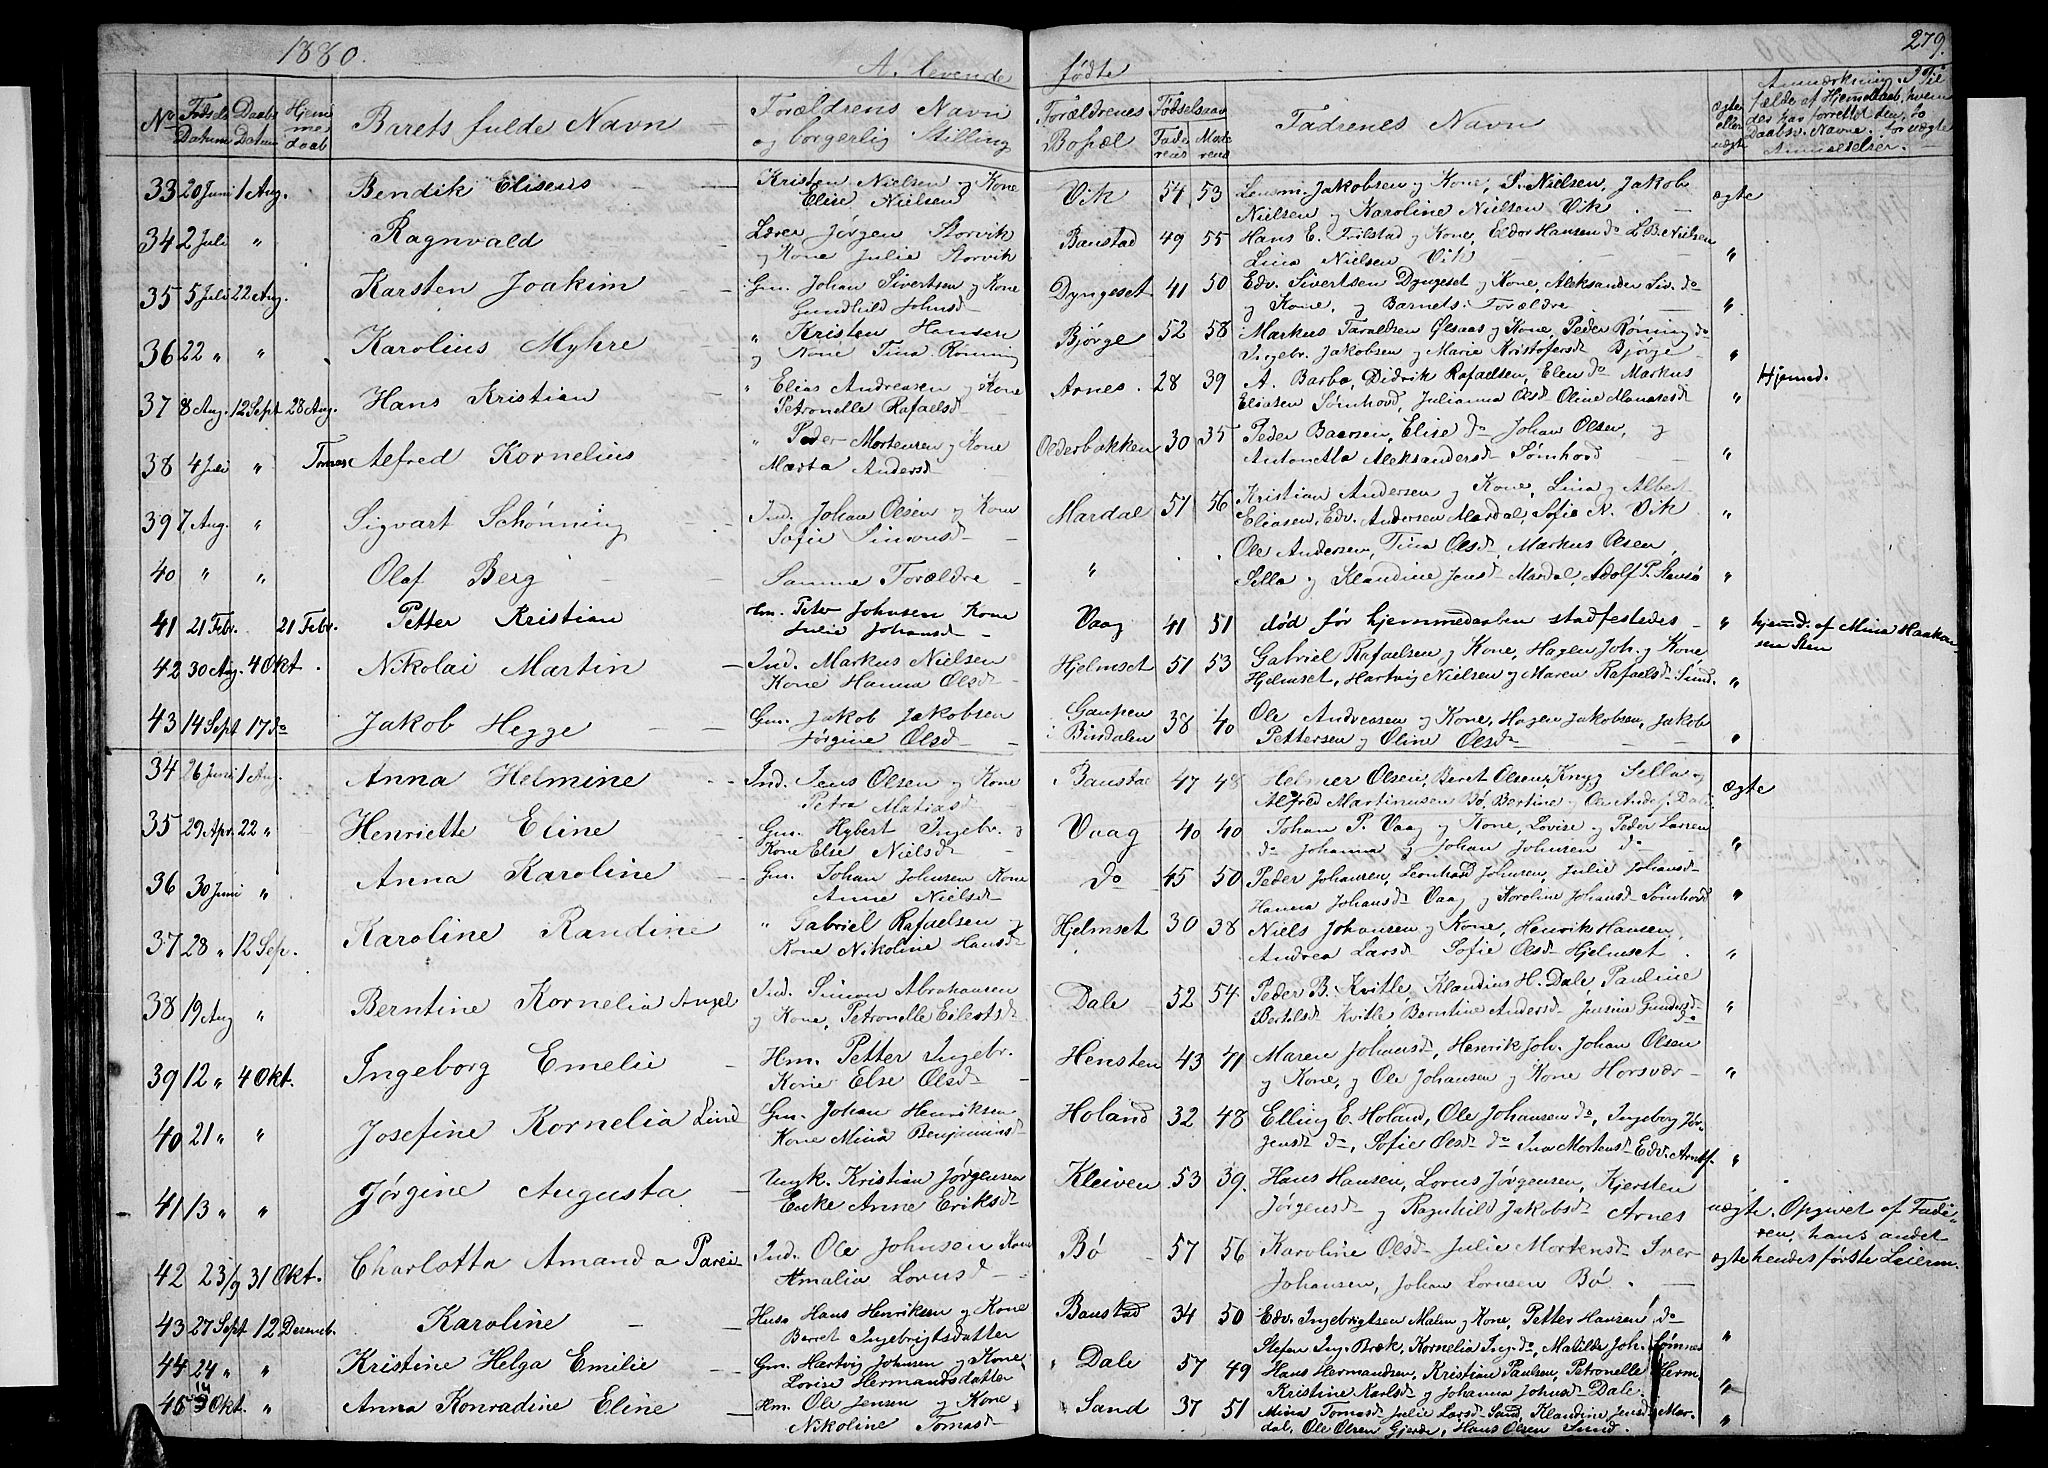 1880.
A. Levende fødte
279.
No Fødsels Datum Daabs Datum Hjemmedaab Barets fulde Navn Forældrens Navn og borgerlig Stilling Forældrenes Bopæl Fødselsaar Faderens Moderens Fadrenes Navn ægte eller uægte Anmærkning. I Tilfælde af Hjemmedaab, hvem
33 20 Juni 1 Aug. Bendik Eliseus Kristen Nielsen og Kone Vik 54 53 Lensm. Jakobsen og Kone, P. Nielsen, Jakob ægte
Elise Nielsen Nielsen og Karoline Nielsen Vik
34 2 Juli " Ragnvald Lærer Jørgen Storvik Baustad 49 55 Hans E. Trilstad og Kone, Eldor Hansen do L. B. Nielsen "
og Kone Julie Storvik Lina Nielsen Vik
35 5 Juli 22 Aug. Karsten Joakim Gm. Johan Sivertsen og Kone Dyngeset 41 50 Edv. Sivertsen Dyngeset og Kone, Aleksander Siv. do "
Gundhild Johnsd og Kone, og Barnets Forældre
36 22 " " Karolius Myhre " Kristen Hansen Bjørge 52 58 Markus Taraldsen Ølsaas og Kone, Peder Rønning do "
og Kone Tina Rønning Ingebr. Jakobsen og Marie Kristofersd Bjørge
37 8 Aug. 12 Sept 28 Aug. Hans Kristian " Elias Andreasen og Kone Arnes. 28 39 A. Barbo, Didrik Rafaelsen, Elen do Markus " Hjemd.
Petronelle Rafaelsd Eliasen Sømhovd, Julianna Olsd Oline Manasesd
38 4 Juli " Alfred Kornelius " Peder Mortensen og Kone Olderbakken 30 35 Peder Baarsen, Elise do Johan Olsen, og "
Marta Andersd Antonetta Aleksandersd Sømhovd
39 7. Aug. " Sigvart Schønning Ind. Johan Olsen og Kone Mardal 51 56 Kristian Andersen og Kone, Lina og Albert "
Sofie Simonsd Eliasen, Edv. Andersen Mardal, Sofie N. Vik
40 " " Olaf Berg Samme Forældre " Ole Andersen, Tina Olsd Markus Olsen, "
Sella og Klaudine Jensd Mardal, Adolf P.
41 21 Febr. 21 Febr. Petter Kristian Hm. Peter Johnsen Kone Vaag 41 51 død før hjemmedaaben stadfestedes " hjemd. af Mina Haakon-
Julie Johansd sen Sten
42 30 Aug. 4 Okt. Nikolai Martin Ind. Markus Nielsen Hjelmset 51 53 Gabriel Rafaelsen og Kone, Hagen Joh. og Kone "
Kone Hanna Olsd Hjelmset, Hartvig Nielsen og Maren Rafaelsd Sund.
43 14 Sept 17 do Jakob Hegge Gm. Jakob Jakobsen Gaupen 38 40 Ole Andreasen og Kone, Hagen Jakobsen, Jakob "
Jørgine Olsd Bindalen Pettersen og Oline Olsd
34 26 Juni 1 Aug. Anna Helmine Ind. Jens Olsen og Kone Baustad 47 48 Helmer Olsen, Beret Olsen, Sella og ægte
Petra Matiasd Alfred Martinusen Bø, Bertine og Ole Andof. Dale
35 29 Apr. 22 " Henriette Eline Gm. Hybert Ingebr. og Vaag 40 40 Johan P. Vaag og Kone, Lovise og Peder Larsen "
Kone Else Nielsd do Johanna og Johan Johnsen do
36 30 Juni " Anna Karoline Gm. Johan Johnsen Kone do 45 50 Peder Johansen, Leonhard Johnsen, Julie Johansd "
Anne Nielsd Hanna Johansd Vaag og Karoline Johansd Sømhovd
37 28 " 12 Sep. Karoline Randine " Gabriel Rafaelsen og Hjelmset 30 38 Niels Johansen og Kone, Henrik Hansen, "
Kone Nikoline Hansd Andrea Larsd Sofie Olsd Hjelmset.
38 19 Aug " Berntine Kornelia Angel Ind. Simon Abrahamsen Dale 52 54 Peder B. Kvitle, Klaudius H. Dale, Pauline "
og Kone, Petronelle Eilertsd Bertelsd Kvitle, Berntine Andersd Jensine Gundersd do
39 12 " 4 Okt. Ingeborg Emelie Hm. Petter Ingebr. Hensten 43 41 Maren Johansd, Henrik Joh. Johan Olsen "
Kone Else Olsd og Kone, og Ole Johansen og Kone Horsvær
40 21 " " Josefine Kornelia Lind Gm. Johan Henriksen Holand 32 48 Elling E. Holand, Ole Johansen do, Ingeborg Jør- "
Kone Mina Benjaminsd gensd do, Sofie Olsd do Ina Mortensd Edv. Arntsf.
41 13 " " Jørgine Augusta Ungk. Kristian Jørgensen Kleiven 53 39. Hans Hansen, Lorns Jørgensen, Kjersten uægte. Opgivet af Fade-
Enke Anne Eriksd Jørgensd og Ragnhild Jakobsd Arnes ren, hans andet
42 23/9 31 Okt. Charlotta Amanda Ind. Ole Johnsen Kone Bø 57 56 Karoline Olsd Julie Mortensd Iver ægte hendes første Leierm.
Amalia Lornsd Johansen, Johan Lornsen Bø.
43 27 Sept 12 Desemb. Karoline Husm Hans Henriksen og Kone Baustad 34 50 Edv. Ingebrigtsen Malm og Kone, Petter Hansen do "
Berret Ingebrigtsdatter Stefan Ing. Bræk, Kornelia Ing. do, Matilde Joh. Sømnes
44 24 " " Kristine Helga Emilie Gm. Hartvig Johnsen og Kone Dale 57 49 Hans Hermandsen, Kristian Paulsen, Petronelle Herm "
Lovise Hermandsdatter Kristine Karlsd og Johanna Johnsd Dale.
45 14 Okt. " Anna Konradine Eline Hm. Ole Jensen og Kone Sand 37 51 Mina Tomasd Julie Larsd Sand, Klaudine Jensd Mar- "
Nikoline Tomasd dal, Ole Olsen Gjerde, Hans Olsen Sund.